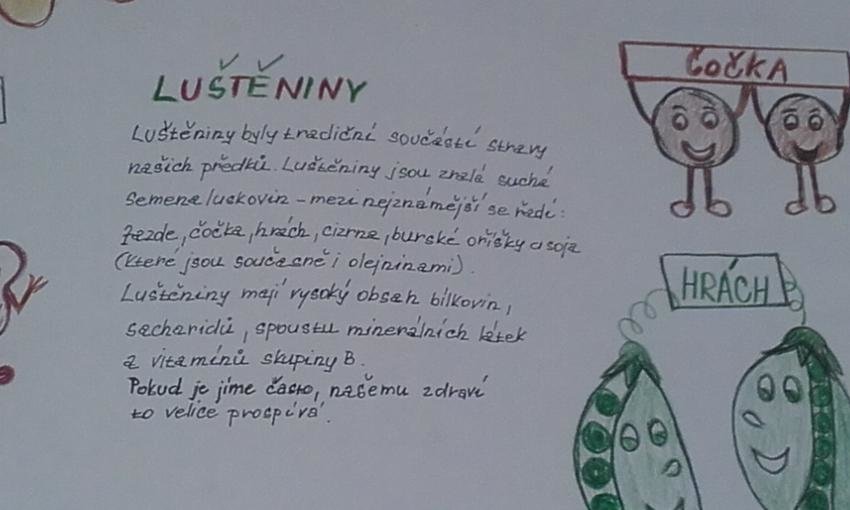 LUŠTĚNINY
Luštěniny byly tradiční součástí stravy
našich předků. Luštěniny jsou zralá suchá
semena luskovin – mezi nejznámější se řadí:
fazole, čočka, hrách, cizrna, burské oříšky a soja
(které jsou současně i olejninami).
Luštěniny mají vysoký obsah bílkovin,
sacharidů, spoustu minerálních látek
a vitamínů skupiny B.
Pokud je jíme často, našemu zdraví
to velice prospívá.
ČOČKA
HRÁCH